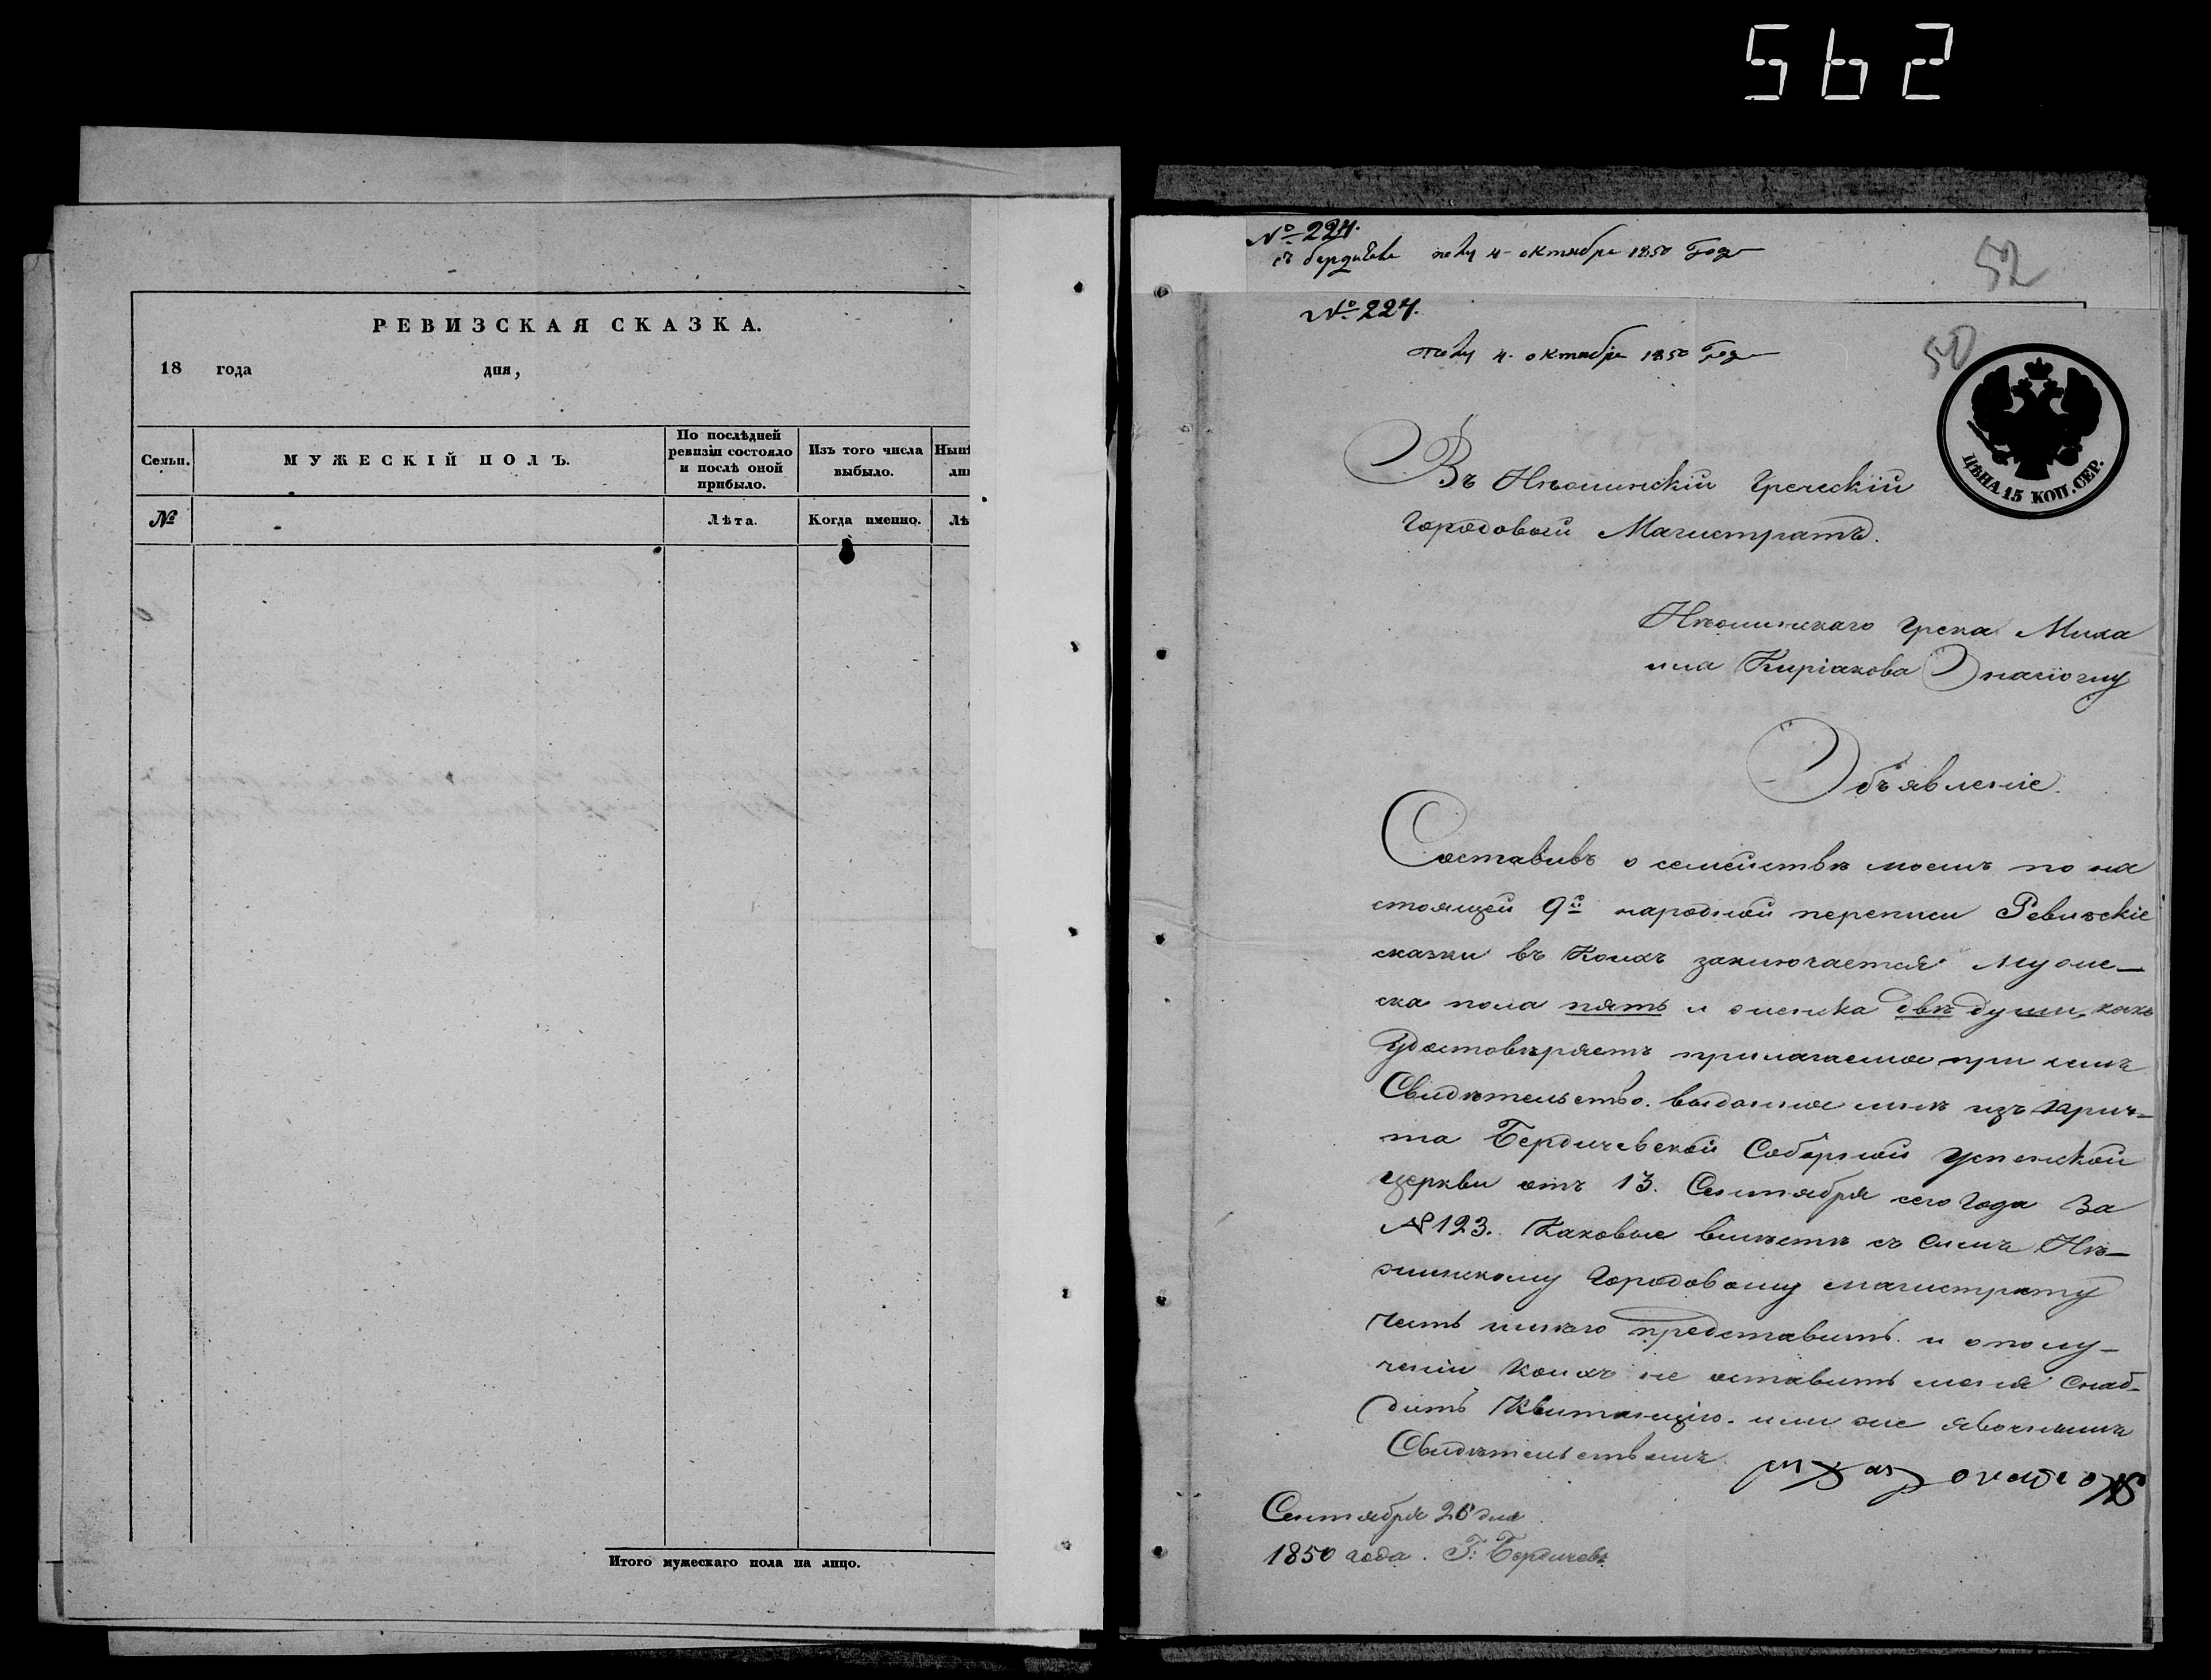 562
РЕВИЗСКАЯ СКАЗКА.
18 года дня,
Семьи.
МУЖЕСКІЙ ПОЛЪ.
По послѣдней ревизіи состояло и послѣ оной прибыло.
Изъ того числа выбыло.
Нынѣ
ли
№
Лѣта.
Когда именно.
Лѣ
Итого мужескаго пола на лицо.
№ 224.
съ бердичева полу 4 октября 1850 Года
52
№ 224.
полу 4 октября 1850 Года
50
ЦѢНА 15 КОП. СЕР.
Въ Нѣжинскій Греческій
Городовый Магистратъ.
Нѣжинскаго Грека Миха
ила Киріакова
Объявленіе.
Составивъ о семействѣ моемъ по на
стоящей 9й народной переписи Ревизскіе
сказки въ коихъ заключается муже–
ска пола пять и женска двѣ души, какъ
удостовѣряетъ прилагаемое при семъ
Свидѣтельство. выданное мнѣ изъ прич–
та Бердичевской Соборной Успенской
церкви отъ 13. Сентября сего года за
№ 123. Каковые вмѣстѣ съ симъ Нѣ–
жинскому Городовому магистрату
честь имѣю представить. и о полу–
ченіи коихъ не оставить меня снаб–
дить Квитанціею. или же явочнымъ
Свидѣтельствомъ.
Сентября 26 дня
1850 года. Г: Бердичевъ